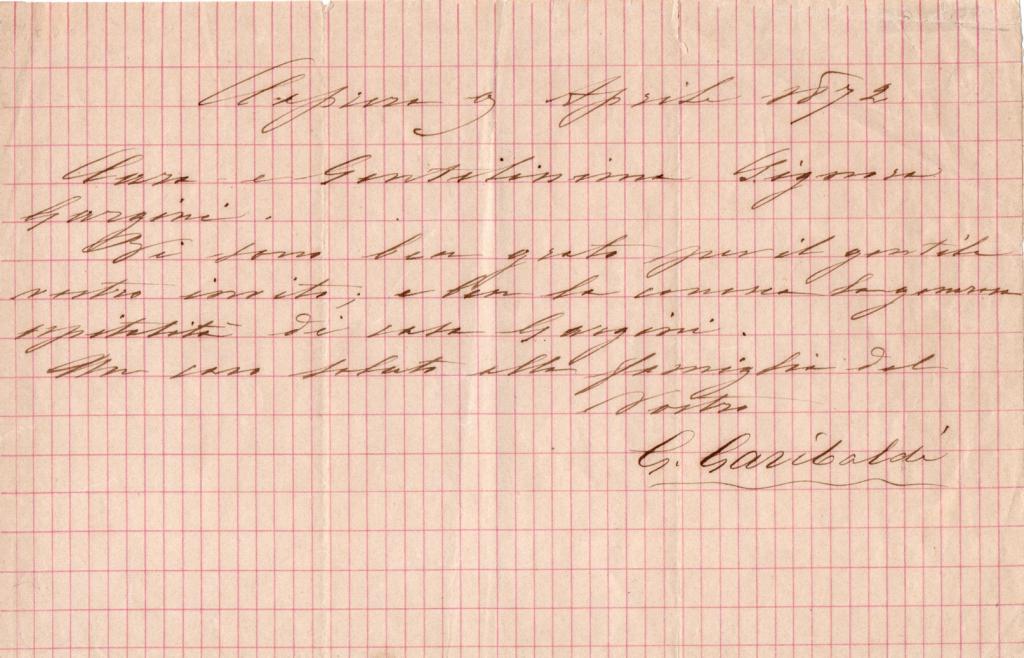 Caprera 9 Aprile 1872
Cara e Gentilissima Signora
Gargini.
Vi sono ben grato per il gentile
vostro invito; e ben la conosco la generosa
ospitalità di casa Gargini.
Un caro saluto alla famiglia dal
Vostro
G. Garibaldi